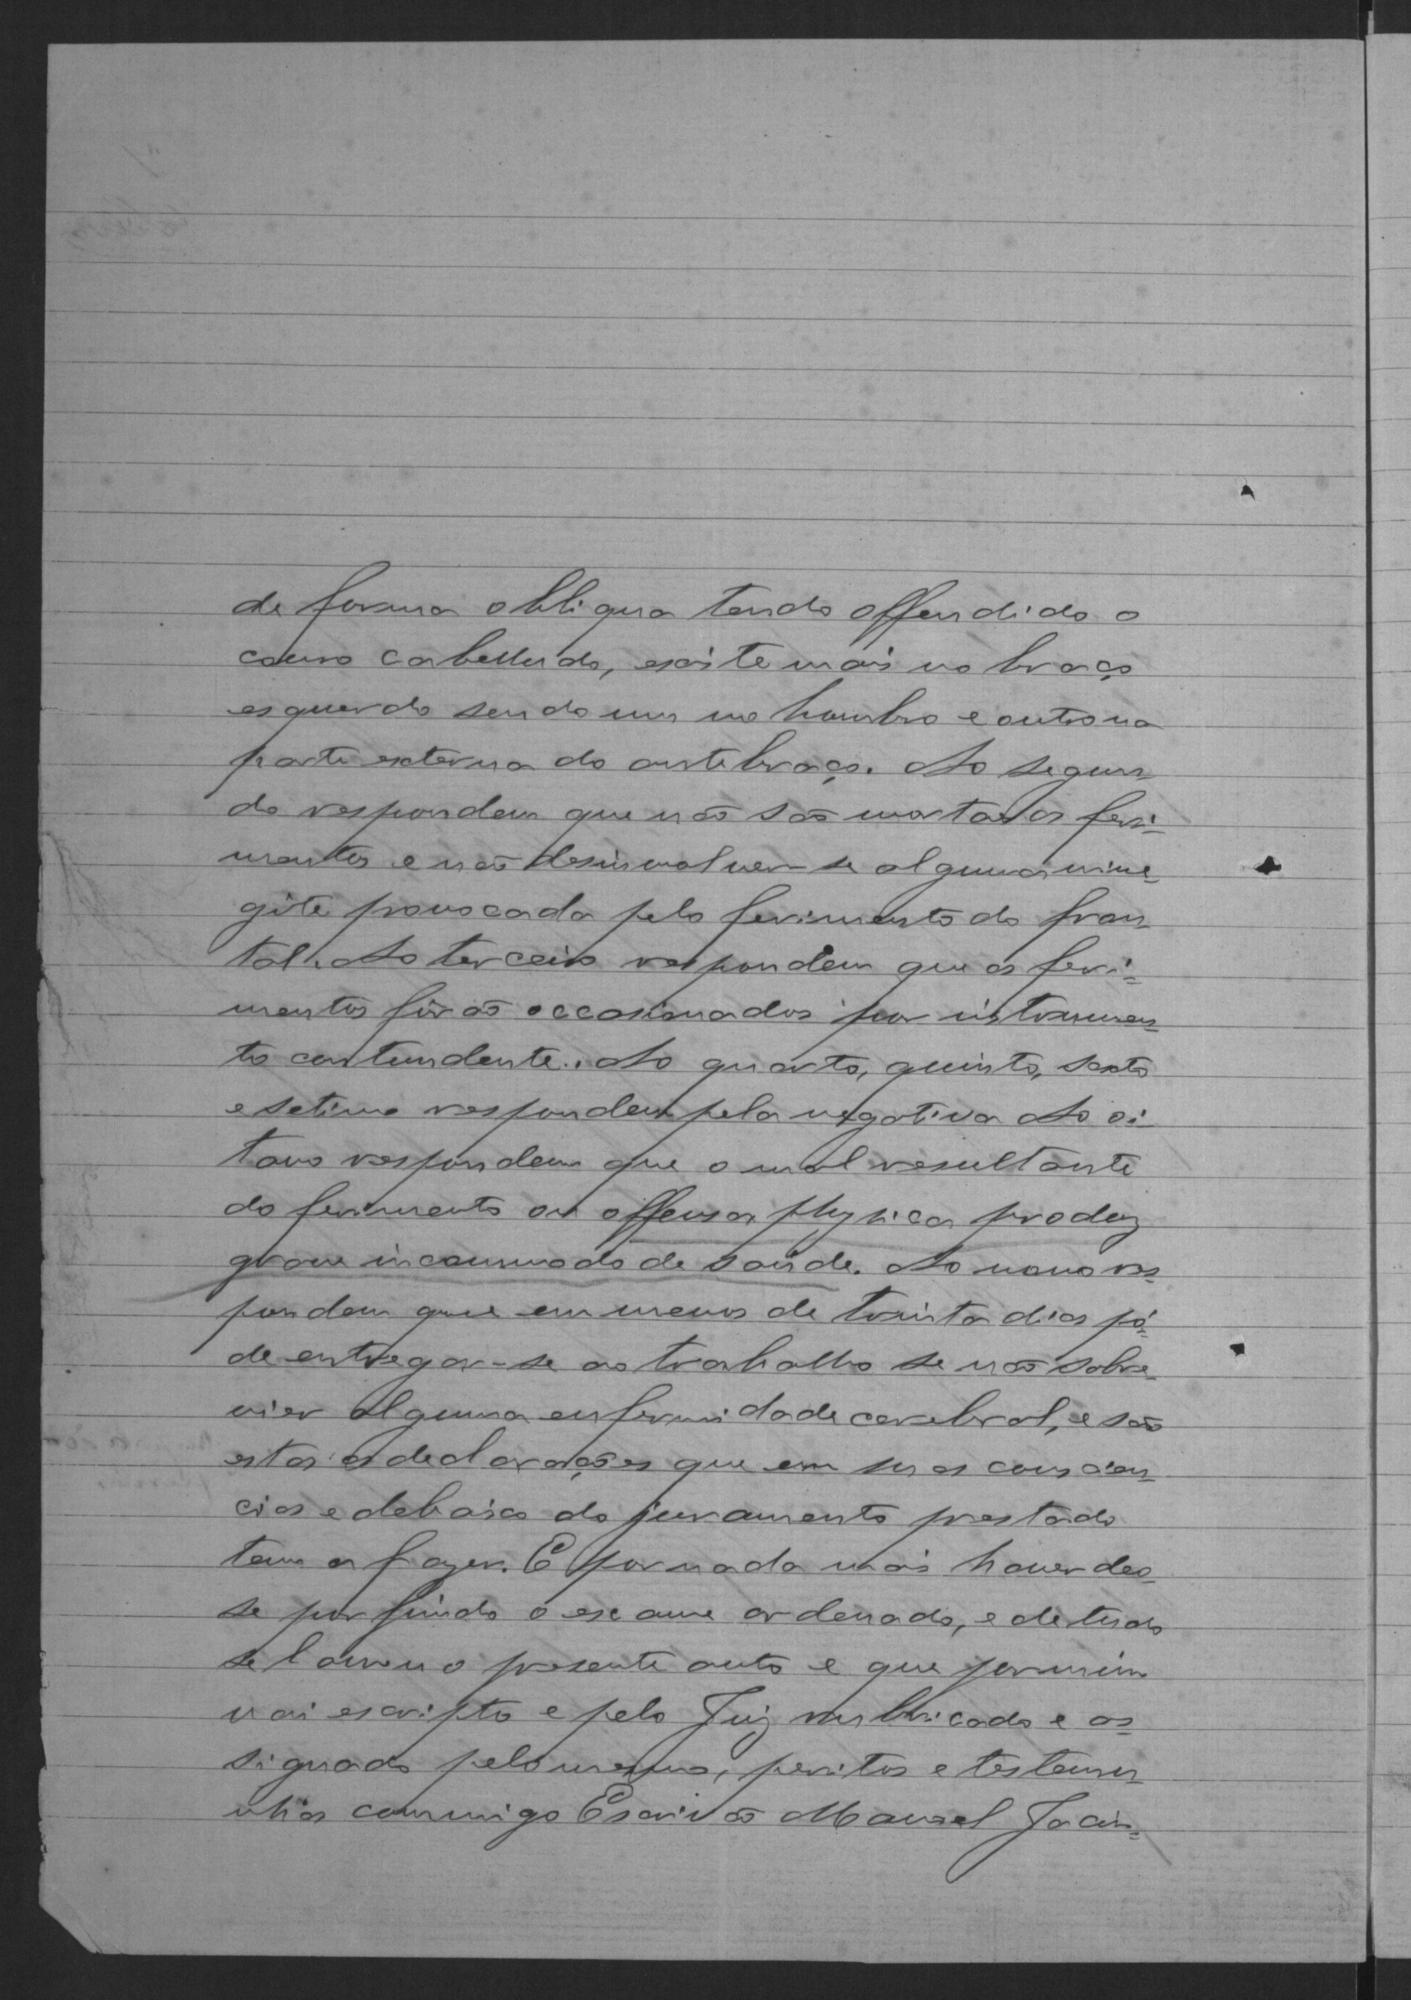 de forma obliqua tendo offendido o
couro cabelludo, existe mais no braço
esquerdo sendo um no hombro e outro na
parte externa do antebraço. Ao segun-
do respondem que não são mortaes os feri-
mentos e não desinvolver-se alguma mine-
gite provocada pelo ferimento do fron-
tal. Ao terceiro respondem que os feri-
mentos fôrão occasionados por instrumen-
to contundente. Ao quarto, quinto, sexto
e setimo respondem pela negativa Ao oi-
tavo respondem que o mal resultante
do ferimento ou offensa physica produz
grave incommodo de saúde. Ao nono res-
pondem que em menos de trinta dias pó-
de entregar-se ao trabalho se não sobre-
vier alguma enfermidade cerebral, e são
estas as declarações que em suas conscien-
cias e debaixo do juramento prestado
tem a fazer. E por nada mais haver deo-
se por findo o exame ordenado, e de tudo
se lavrou o presente auto e que por mim
vai escripto e pelo Juiz rubricado e as-
signado pelo mesmo, peritos e testemu-
nhas commigo Escrivão Manoel Jacin-